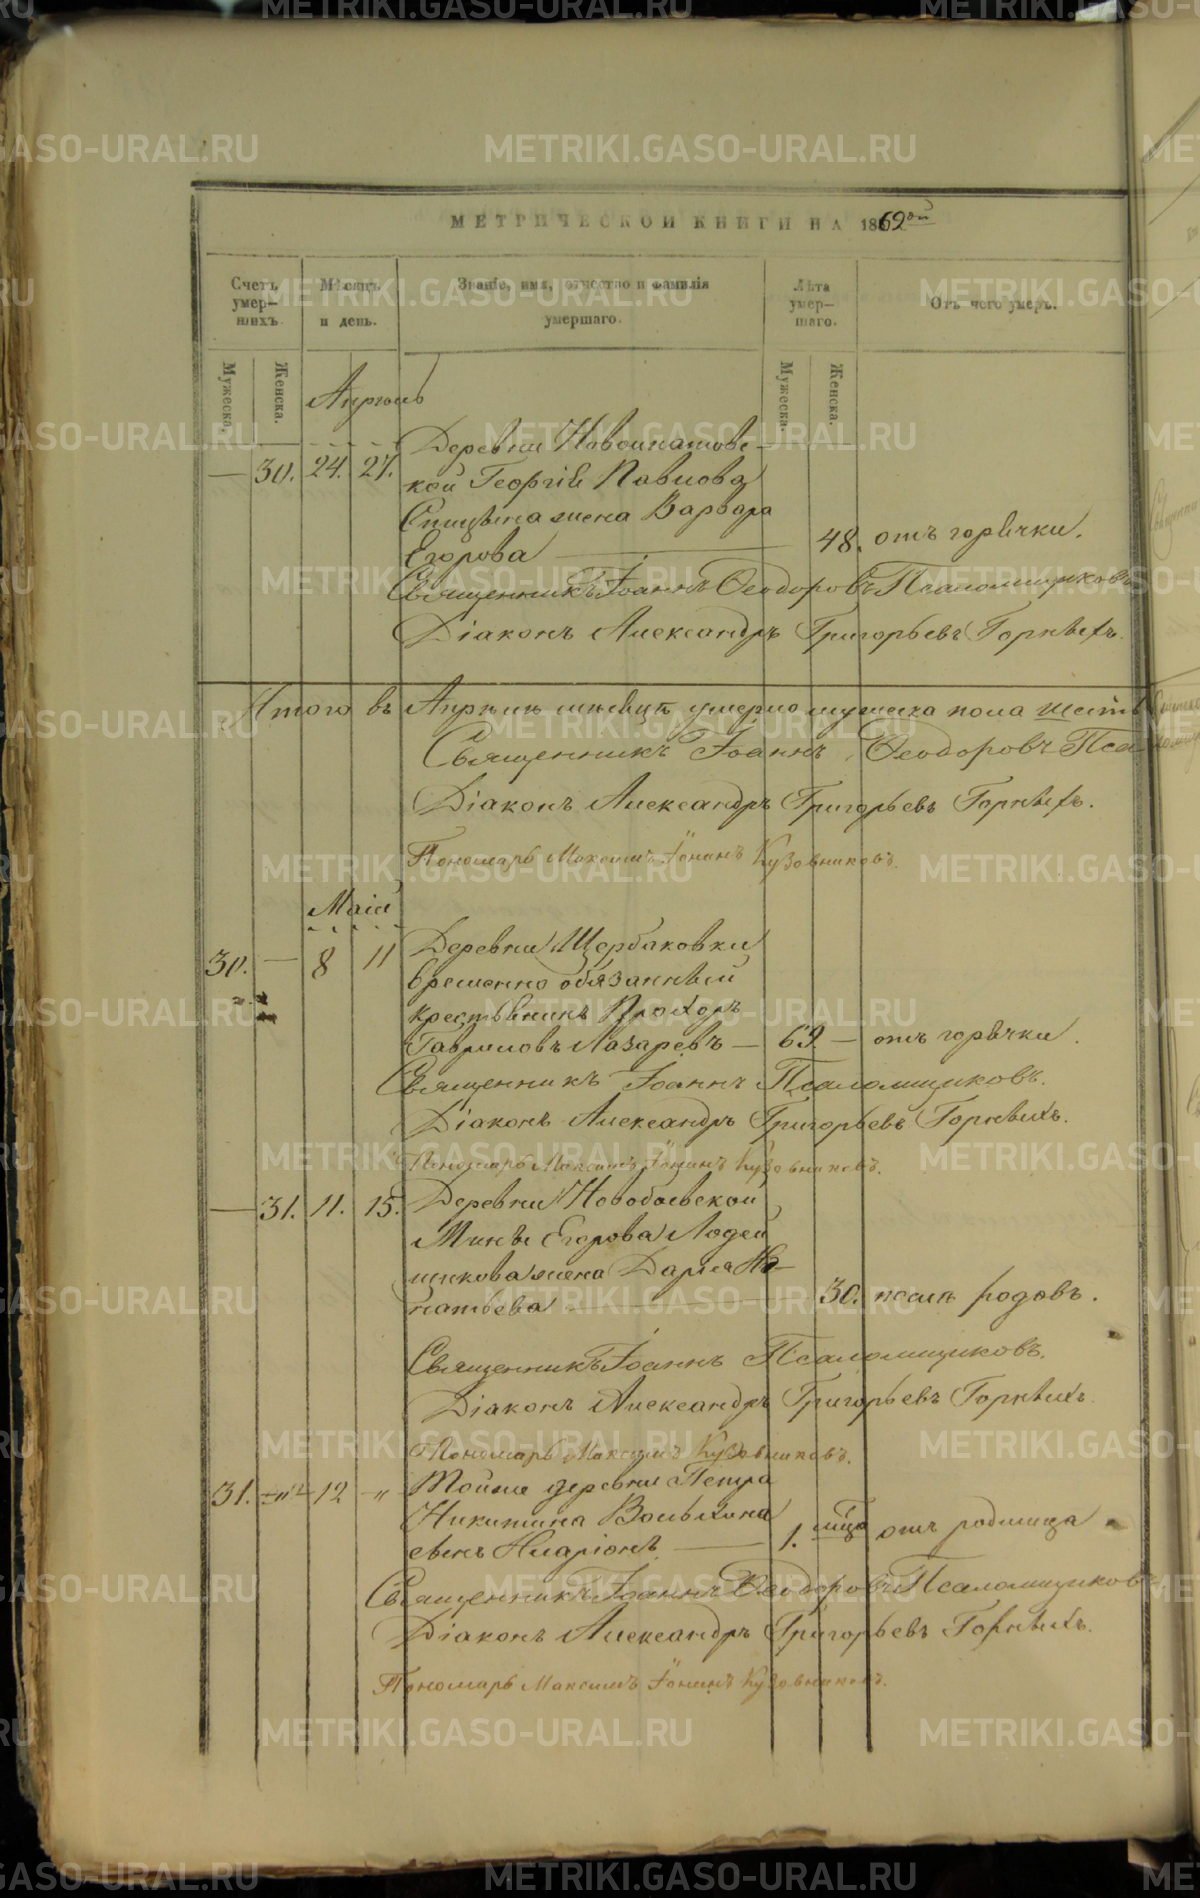 МЕТРИЧЕСКОЙ КНИГИ НА 1862ой
Счетъ умер-шихъ.
Мѣсяцъ и день.
Званіе, имя, отчество и фамилія умершаго.
Лѣта умер-шаго.
Отъ чего умеръ.
Мужеска.
Женска.
Мужеска.
Женска.
Апрѣль
Деревни Новоипатовс-
— 30. 24. 27. кой Георгія Павлова
Спицына жена Варвара
Егорова — 48. отъ горячки.
Священникъ Іоаннъ Ѳеодоровъ Псаломщиковъ
Діаконъ Александръ Григорьевъ Горныхъ.
Итого въ Апрѣлѣ мѣсяцѣ умерло мужеска пола шесть
Священникъ Іоаннъ Ѳеодоровъ Пса
Діаконъ Александръ Григорьевъ Горныхъ.
Пономарь Максимъ Іонинъ Кузовниковъ.
Маій
30. — 8 11 Деревни Щербаковки
временно обязанный
крестьянинъ Прохоръ
Гавриловъ Лазаревъ — 69 — отъ горячки.
Священникъ Іоаннъ Псаломщиковъ.
Діаконъ Александръ Григорьевъ Горныхъ.
Пономарь Максимъ Іонинъ Кузовниковъ.
— 31. 11. 15. Деревни Новобаевской
Мины Егорова Лодей
щикова жена Дарья Иг-
натьева — 30. послѣ родовъ.
Священникъ Іоаннъ Псаломщиковъ.
Діаконъ Александръ Григорьевъ Горныхъ.
Пономарь Максимъ Кузовниковъ.
31. 12 „ Тойже деревни Петра
Никитина Волыхина
сынъ Иларіонъ — 1. мѣца отъ родимца
Священникъ Іоаннъ Ѳеодоровъ Псаломщиковъ
Діаконъ Александръ Григорьевъ Горныхъ.
Пономарь Максимъ Іонинъ Кузовниковъ.
METRIKI.GASO-URAL.RU